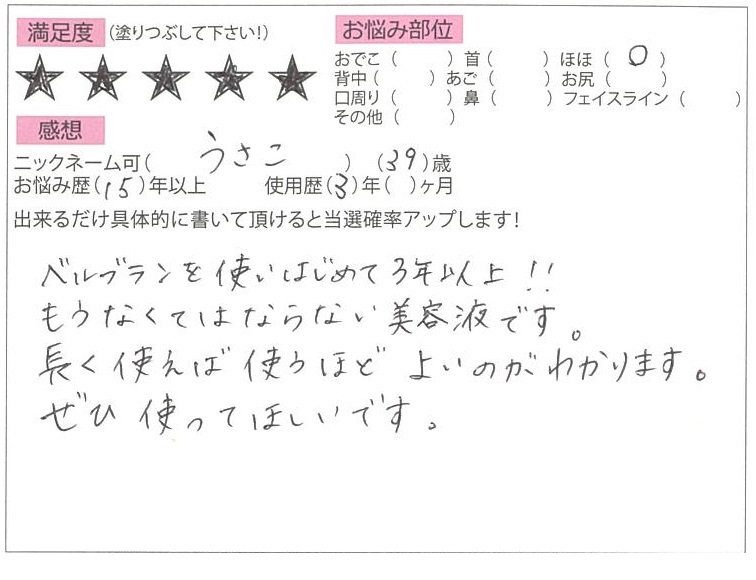 満足度 (塗りつぶして下さい!)
お悩み部位
おでこ（　　）首（　　）ほほ（ 〇 ）
背中（　　）あご（　　）お尻（　　）
口周り（　　）鼻（　　）フェイスライン（　　）
その他（　　）
感想
ニックネーム可( うさこ ) (39)歳
お悩み歴(15)年以上 使用歴(3)年( )ヶ月
出来るだけ具体的に書いて頂けると当選確率アップします!
ベルブランを使いはじめて3年以上!!
もうなくてはならない美容液です。
長く使えば使うほどよいのがわかります。
ぜひ使ってほしいです。